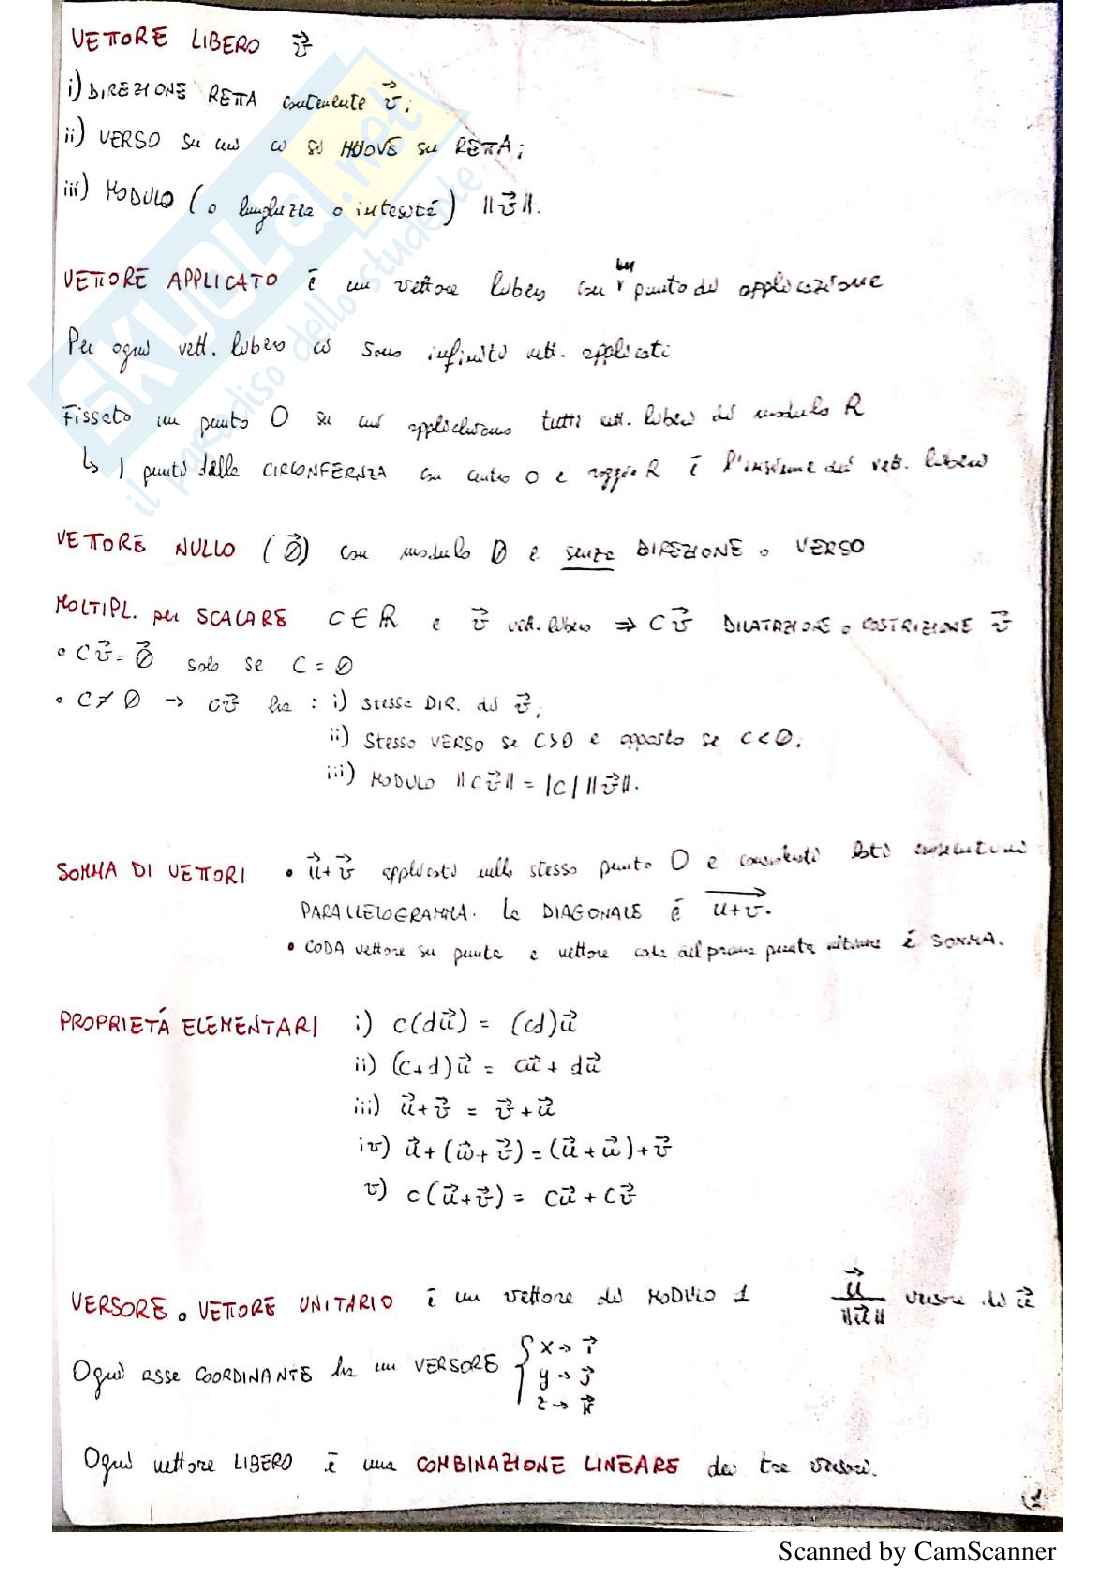 VETTORE LIBERO v⃗
i) DIREZIONE RETTA contenente v⃗;
ii) VERSO su cui ci si MUOVE su RETTA;
iii) MODULO (o lunghezza o intensità) ||v⃗||.
VETTORE APPLICATO è un vettore libero con punto di applicazione
Per ogni vett. libero ci sono infiniti vett. applicati
Fissato un punto O su cui applichiamo tutti vett. liberi di modulo R
↳ I punti della CIRCONFERENZA con centro O e raggio R è l'insieme dei vett. liberi
VETTORE NULLO (0⃗) con modulo 0 e senza DIREZIONE o VERSO
MOLTIPL. per SCALARE C∈R e v⃗ vett. libero ⇒ Cv⃗ DILATAZIONE o COSTRIZIONE v⃗
• Cv⃗ = 0⃗ solo se C = 0
• C≠0 → cv⃗ ha : i) stessa DIR. di v⃗;
ii) Stesso VERSO se C>0 e opposto se C<0.
iii) MODULO ||cv⃗|| = |c| ||v⃗||.
SOMMA DI VETTORI • u⃗+v⃗ applicati nello stesso punto O e lati
PARALLELOGRAMMA. La DIAGONALE è u+v.
• CODA vettore su punta e vettore coda del primo punta è SOMMA.
PROPRIETÁ ELEMENTARI i) c(du⃗) = (cd)u⃗
ii) (c+d)u⃗ = cu⃗ + du⃗
iii) u⃗+v⃗ = v⃗+u⃗
iv) u⃗+(w⃗+v⃗)=(u⃗+w⃗)+v⃗
v) c(u⃗+v⃗) = cu⃗ + cv⃗
VERSORE o VETTORE UNITARIO è un vettore di MODULO 1 u⃗/||u⃗|| versore di u⃗
Ogni asse COORDINANTE ha un VERSORE { x → i⃗
y → j⃗
z → k⃗
Ogni vettore LIBERO è una COMBINAZIONE LINEARE dei tre versori.
1
SKUOLA.net
il paradiso dello studente
Scanned by CamScanner